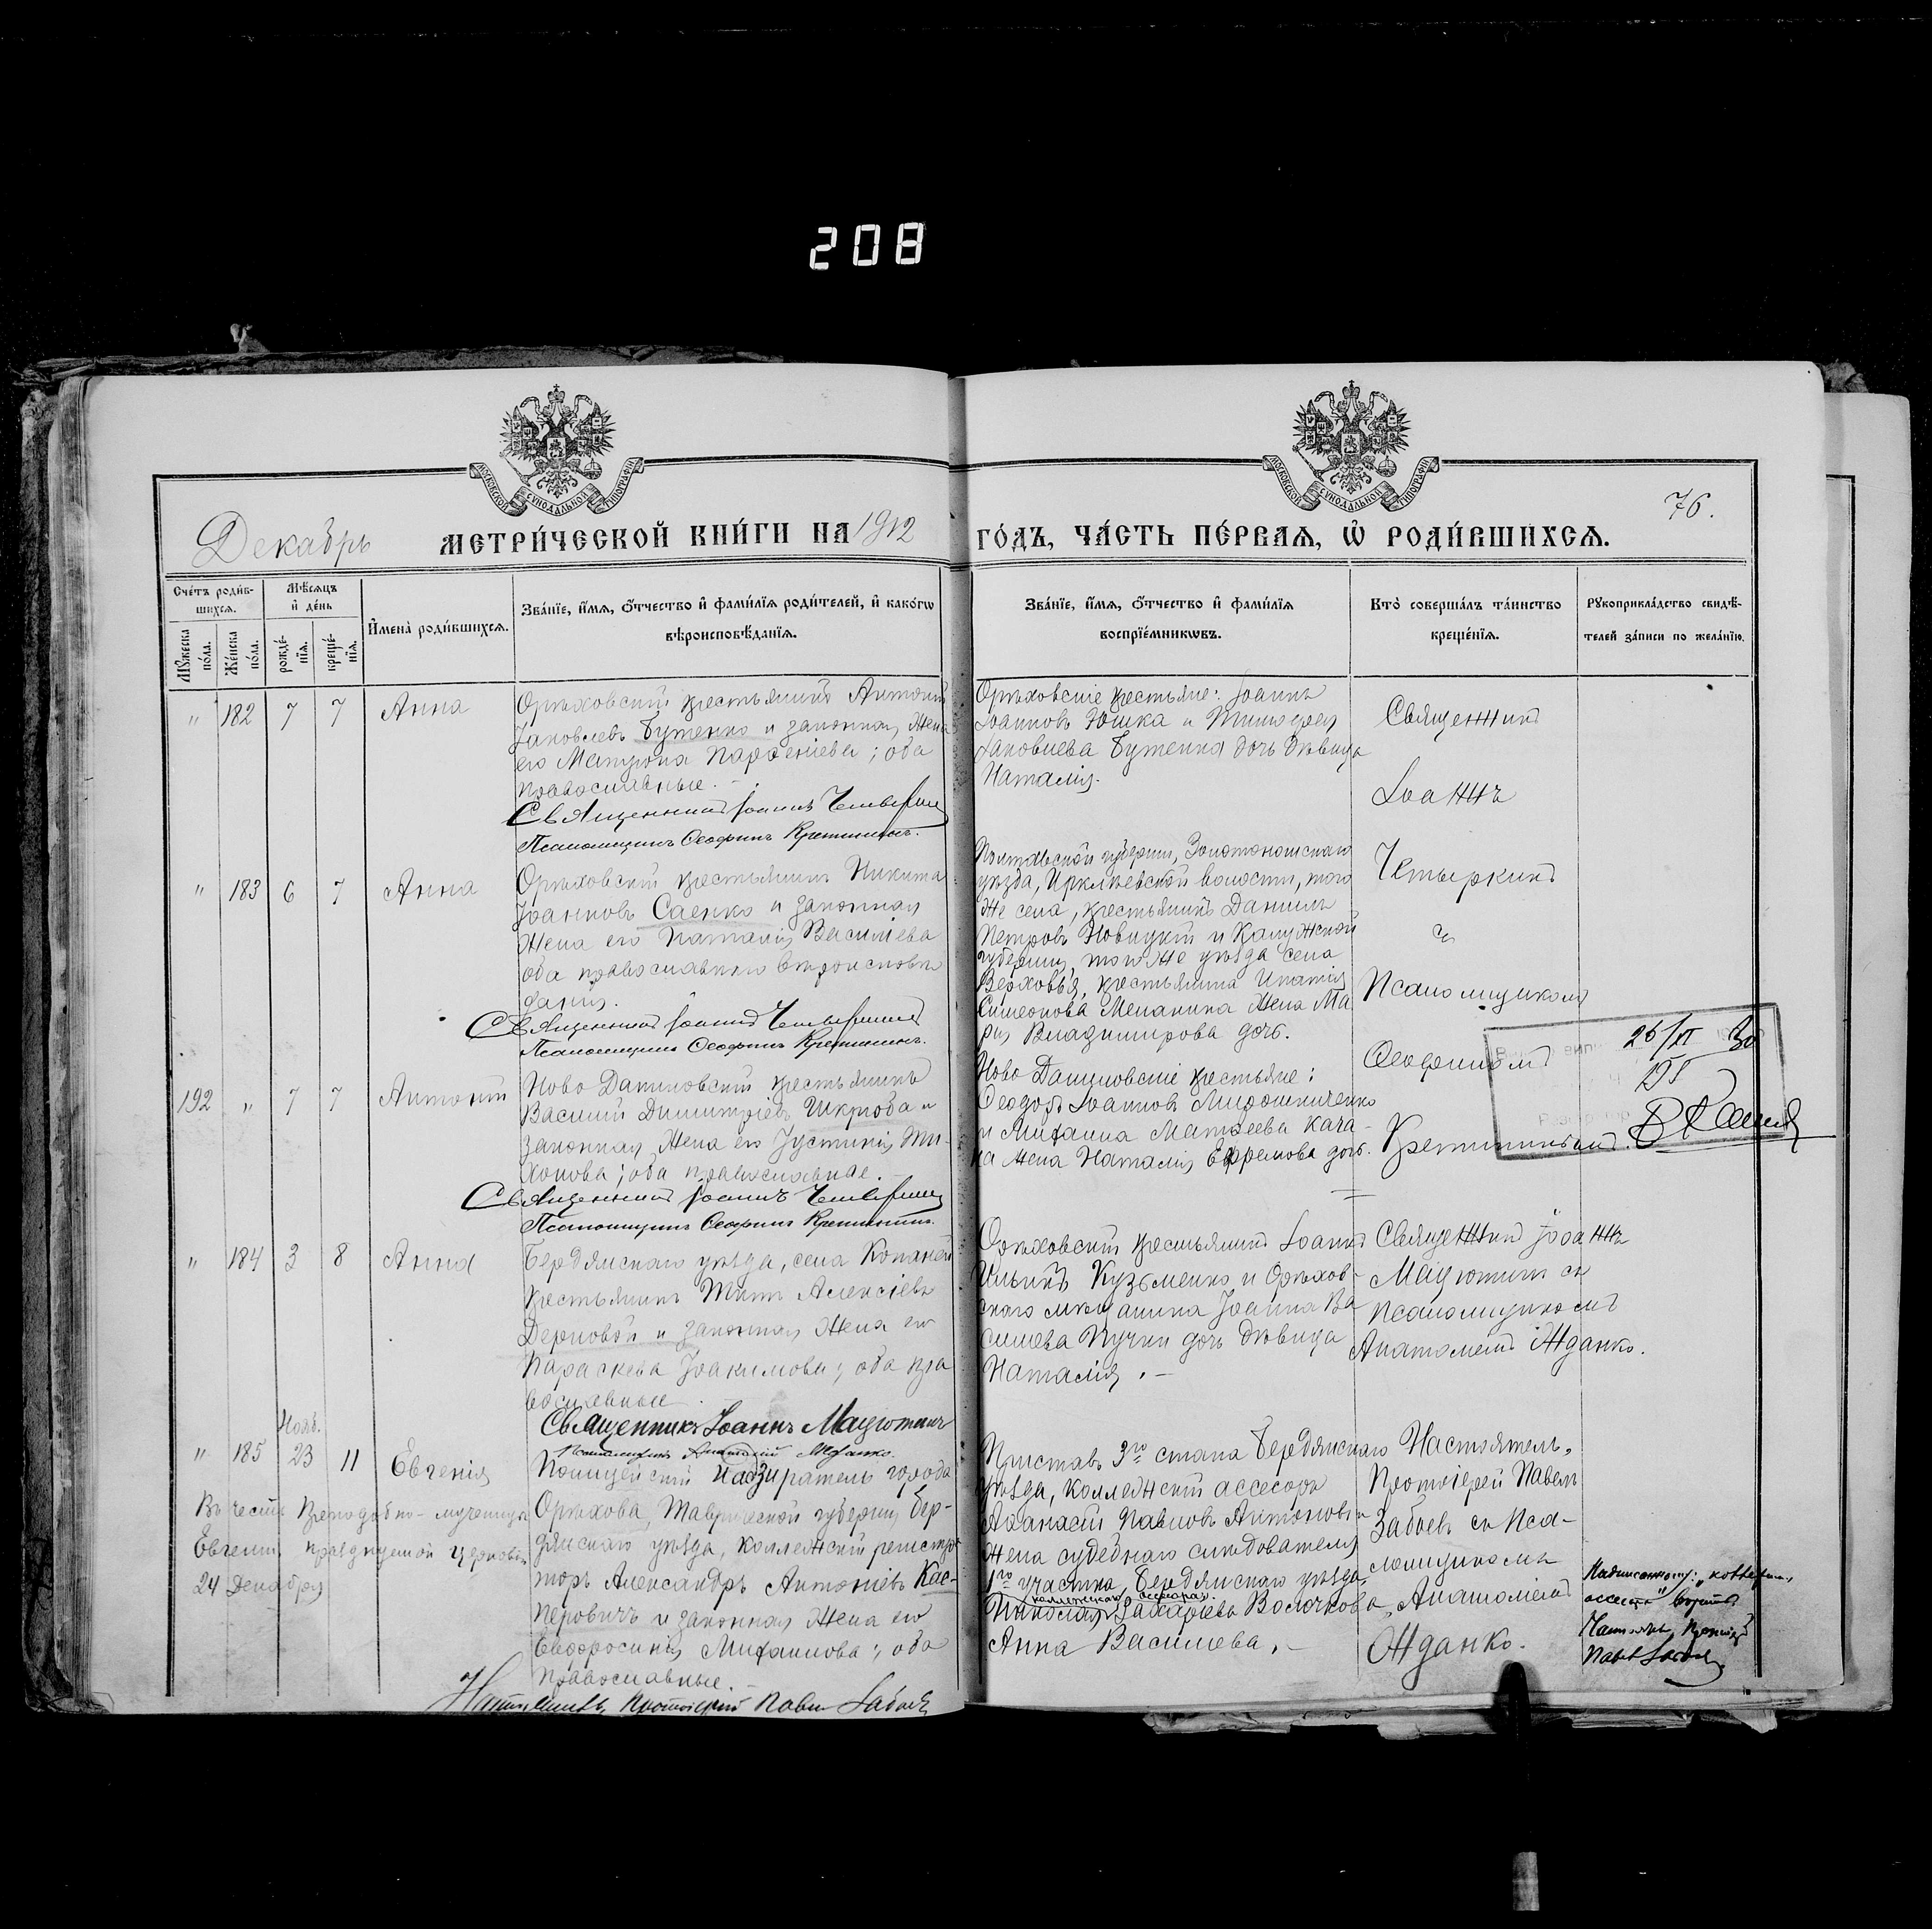 208
МОСКОВСКОЙ СѴНОДАЛЬНОЙ ТИПОГРАФІИ
МОСКОВСКОЙ СѴНОДАЛЬНОЙ ТИПОГРАФІИ
76.
Декабрь МЕТРИ́ЧЕСКОЙ КНИ́ГИ НА 1912 ГО́ДЪ, ЧА́СТЬ ПЕ́РВАѦ, Ѽ РОДИ́ВШИХСѦ.
Сче́тъ роди́в-
шихсѧ.
Мꙋ́жеска по́ла.
Же́нска по́ла.
Мѣ́сѧцъ
и҆ де́нь
рожде́-
нїѧ.
креще́-
нїѧ.
И҆мена̀ роди́вшихсѧ.
Зва́нїе, и҆́мѧ, ѻ҆́тчество и҆ фами́лїѧ роди́телей, и҆ како́гѡ
вѣроисповѣ́данїѧ.
Зва́нїе, и҆́мѧ, ѻ҆́тчество и҆ фами́лїѧ
воспрїе́мникѡвъ.
Кто̀ соверша́лъ та́инство
креще́нїѧ.
Рꙋкоприкла́дство свидѣ́-
телей за́писи по жела́нїю.
" 182 7 7 Анна
Орѣховскій крестьянинъ Антоній
Іаковлевъ Бутенко и законная жена
его Матрона Парѳеніева; оба
православные.
Священникъ Іоаннъ Четыркинъ
Псаломщикъ Ѳеофилъ Кретининъ.
Орѣховскіе крестьяне: Іоаннъ
Іоанновъ Юшка и Тимоѳея
Іаковлева Бутенка дочь дѣвица
Наталія.
Священникъ
Іоаннъ
Четыркинъ
съ
Псаломщикомъ
Ѳеофиломъ
Кретининымъ.
" 183 6 7 Анна
Орѣховскій крестьянинъ Никита
Іоанновъ Саенко и законная
жена его Наталія Василіева
оба православнаго вѣроисповѣ
данія.
Священникъ Іоаннъ Четыркинъ
Псаломщикъ Ѳеофилъ Кретининъ.
Полтавской губерніи, Золотоношскаго
уѣзда, Ирклѣевской волости, того
же села, крестьянинъ Даніилъ
Петровъ Новицкій и Калужской
губерніи, того же уѣзда села
Верховья, крестьянина Ипатія
Симеонова Меланина жена Ма
рія Владимирова дочь.
26/VI 30
192 " 7 7 Антоній
Ново Даниловскій крестьянинъ
Василій Димитріевъ Шкрюба и
законная жена его Іустинія Ти-
хонова; оба православные.
Священникъ Іоаннъ Четыркинъ
Псаломщикъ Ѳеофилъ Кретининъ.
Ново Даниловскіе крестьяне:
Ѳеодоръ Іоанновъ Мирошниченко
и Михаила Матѳеева Кача-
на жена Наталія Ефремова дочь.
" 184 3 8 Анна
Бердянскаго уѣзда, села Копаней
крестьянинъ Титъ Алексіевъ
Дерновой и законная жена его
Параскева Іоакимова; оба пра
вославные.
Священникъ Іоаннъ Мацютинъ
Псаломщикъ Анатолій Жданко.
Орѣховскій крестьянинъ Іоаннъ
Ильинъ Кузьменко и Орѣхов-
скаго мѣщанина Іоанна Ва
силиева Пучки дочь дѣвица
Наталія.
Священникъ Іоаннъ
Мацютинъ съ
псаломщикомъ
Анатоліемъ Жданко.
Нояб.
" 185 23 11 Евгенія
Въ честь преподобно-мученицы
Евгеніи, празднуемой церковью
24 Декабря
Полицейскій надзиратель города
Орѣхова, Таврической губерніи, Бер-
дянскаго уѣзда, коллежскій регистра
торъ Александръ Антоніевъ Кас-
перовичъ и законная жена его
Евфросинія Михаилова; оба
православные.
Настоятель, Протоіерей Павелъ Забаевъ
Приставъ 3го стана Бердянскаго
уѣзда, коллежскій ассесоръ
Аѳанасій Павловъ Антоновъ и
жена судебнаго слѣдователя
1го участка, Бердянскаго уѣзда,
коллежскаго ассесора
Николая Захаріева Волочкова,
Анна Василіева.
Настоятель,
Протоіерей Павелъ
Забаевъ съ Пса-
ломщикомъ
Анатоліемъ
Жданко.
Надписанному: "коллежск.
ассесора" вѣрить
Настоятель, Протоіер.
Павелъ Забаевъ